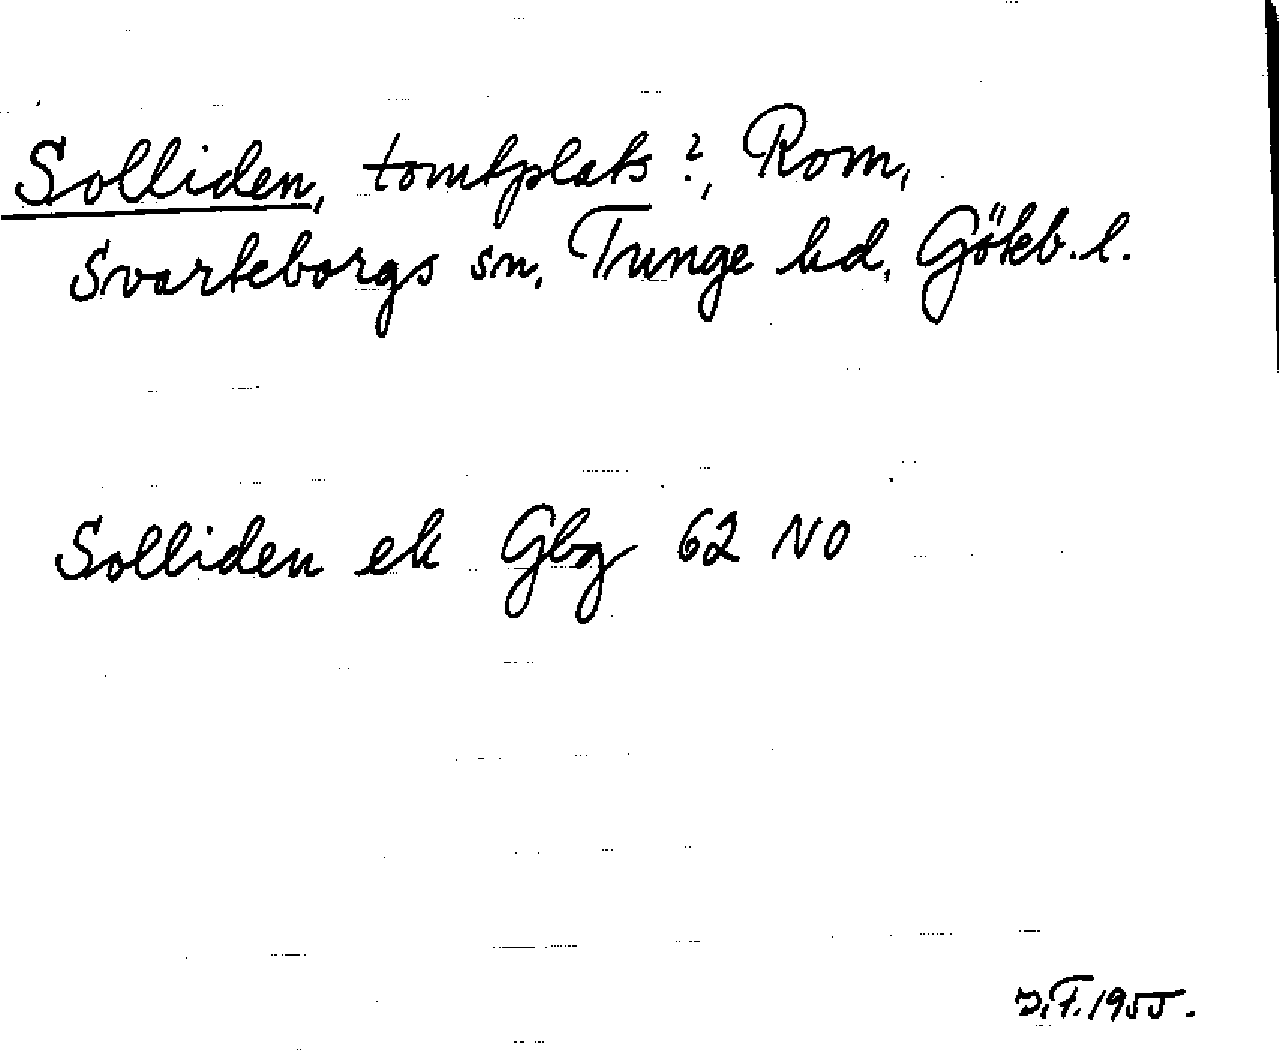 Solliden, tomtplats ?, Rom,
Svarteborgs sn, Tunge hd, Gökb. l.
Solliden ek Gbg 62 NO
J.F. 1955.